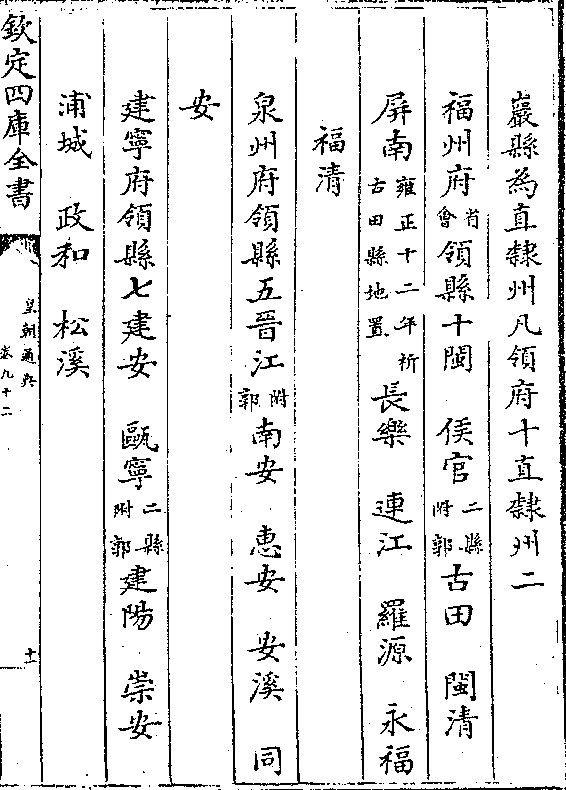 巖縣為直隸州凡領府十直隸州二
福州府省會領縣十閩 侯官二縣附郭古田 閩清
屏南雍正十二年析古田縣地置長樂 連江 羅源 永福
福清
泉州府領縣五晉江附郭南安 惠安 安溪 同
安
建寧府領縣七建安 甌寧二縣附郭建陽 崇安
浦城 政和 松溪
欽定四庫全書
皇朝通典
卷九十二
十一